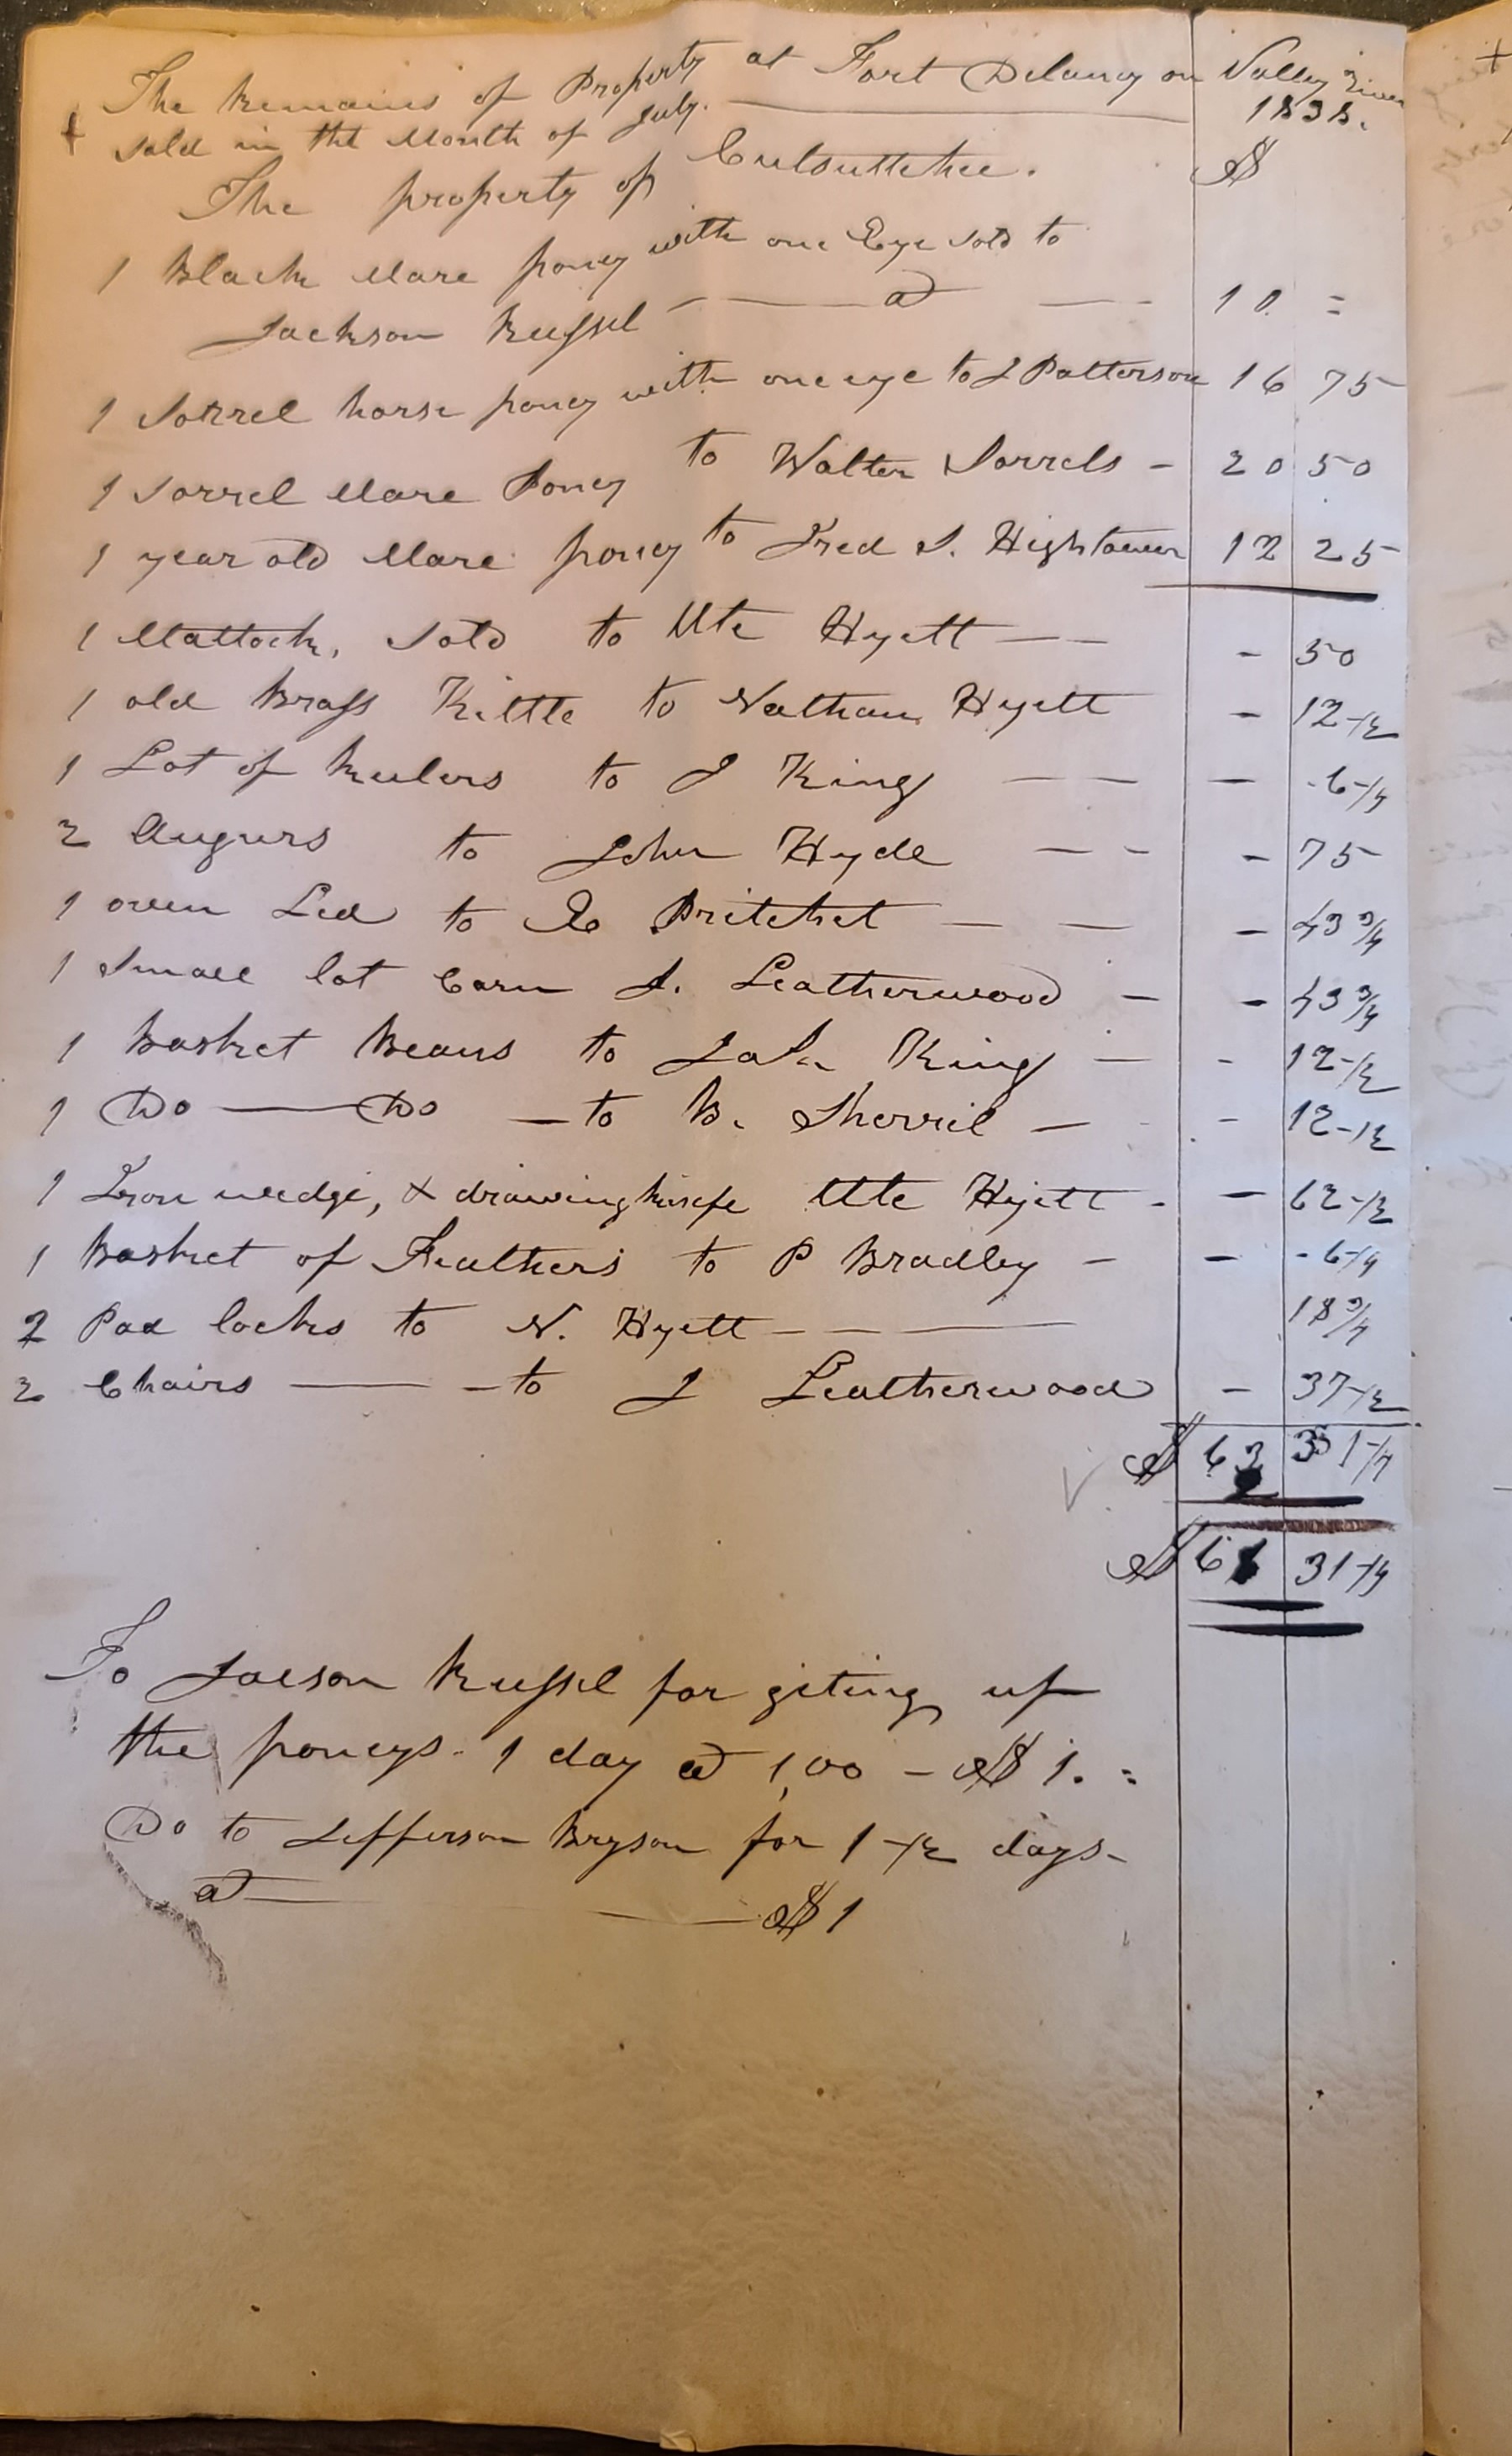 The Remains of Property at Fort Delaney on Valley River
sold in the Month of July. 1838.
The property of Culsuttehee. $
1 Black Mare poney with one Eye sold to
Jackson Russel — @ — 10 =
1 Sorrel horse poney with one eye to J Patterson 16 75
1 Sorrel Mare Poney to Walter Sorrels - 20 50
1 year old Mare poney to Fred S. Hightower 12 25
1 Mattock, sold to Ute Hyatt — — - 50
1 old Brass Kittle to Nathan Hyatt - 12-½
1 Lot of to J King — — - 6-¼
2 Augurs to John Hyde — - - 75
1 oven Led to Pritchet — — - 43 ¾
1 Small lot Corn J. Leatherwood - - 43 ¾
1 Basket Beans to John King — - 12-½
1 Do — Do — to B. Sherril — - 12-½
1 Iron wedge, & drawing knife Ute Hyatt - - 62-½
1 Basket of Feathers to P Bradley - - 6-¼
2 Pad locks to N. Hyatt - - — 18 ¾
2 Chairs — - to J Leatherwood - 37-½
$ 63 31-¼
$ 61 31-¼
To Jacson Russel for giting up
the poneys - 1 day @ 1,00 - $ 1. =
Do to Jefferson Bryson for 1-½ days -
@ — — $ 1